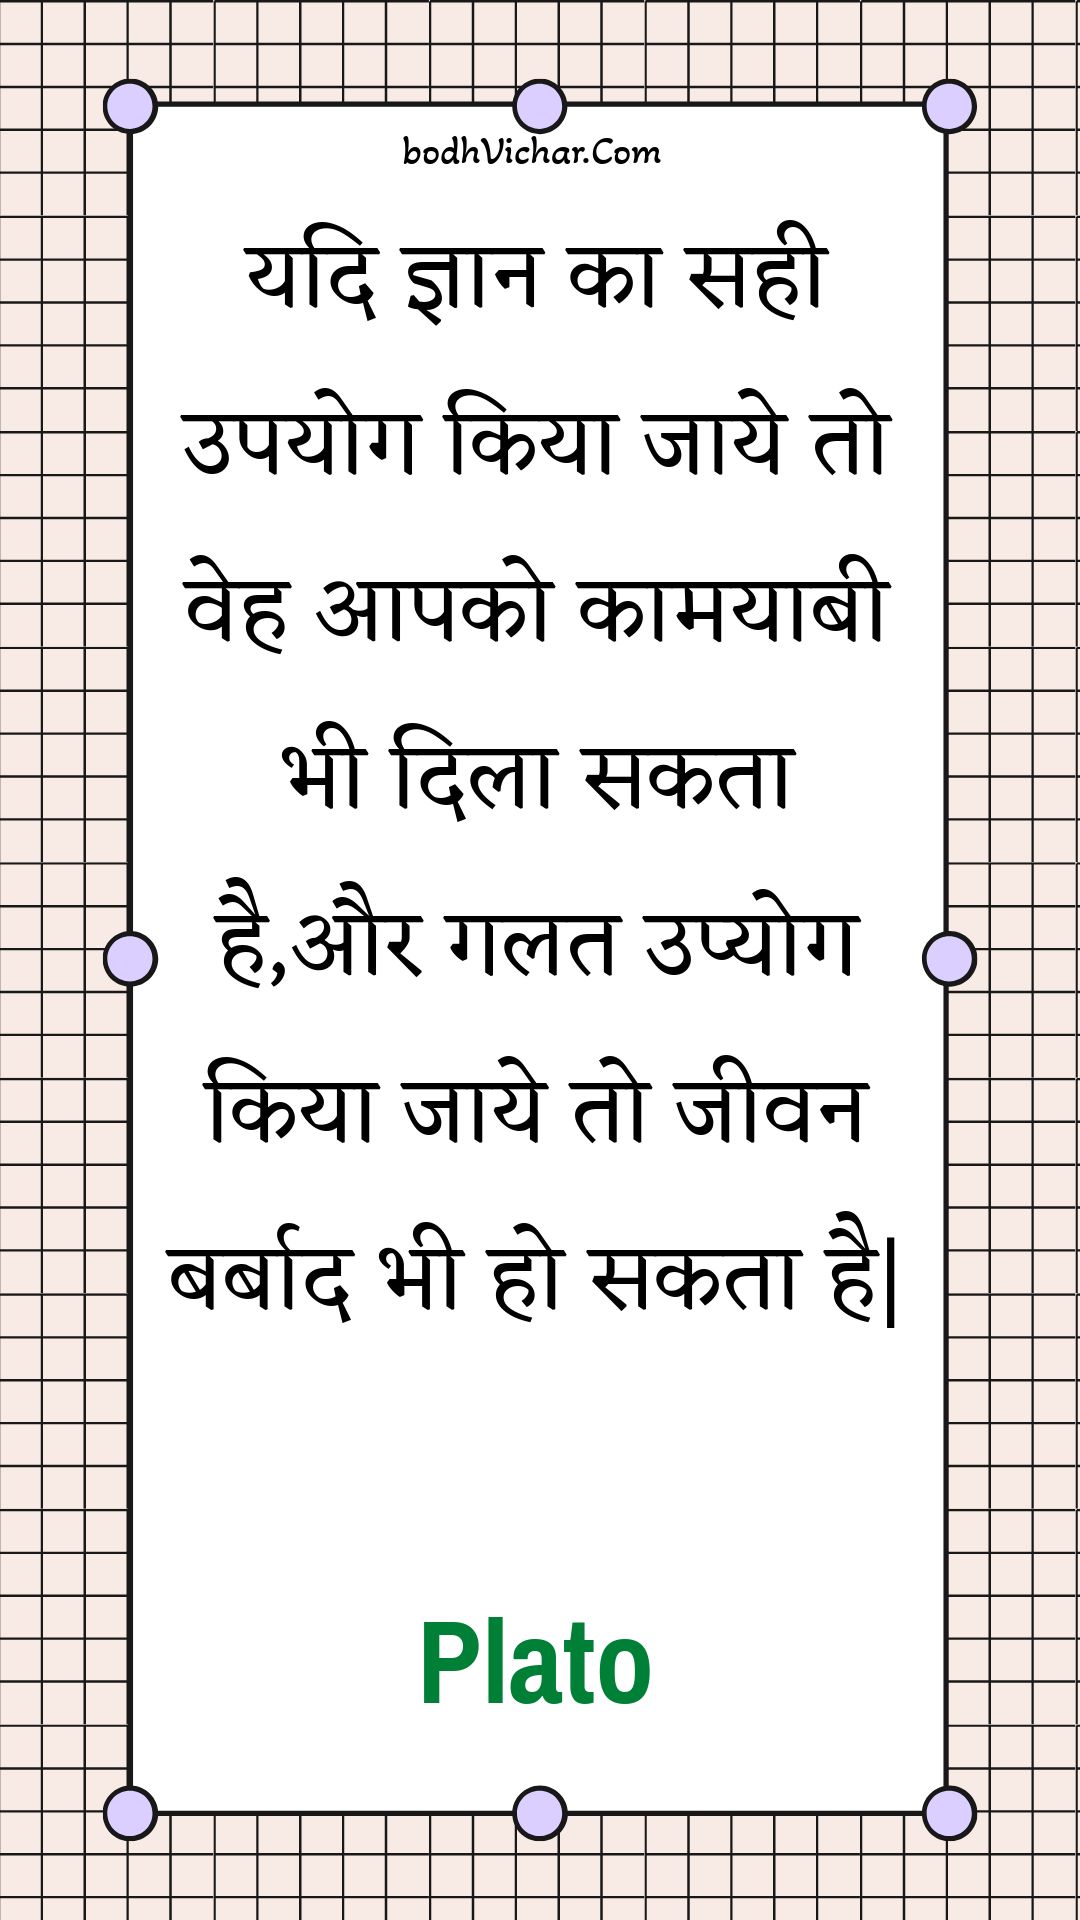 bodhVichar.Com
यदि ज्ञान का सही
उपयोग किया जाये तो
वेह आपको कामयाबी
भी दिला सकता
है,और गलत उप्योग
किया जाये तो जीवन
बर्बाद भी हो सकता है|
Plato